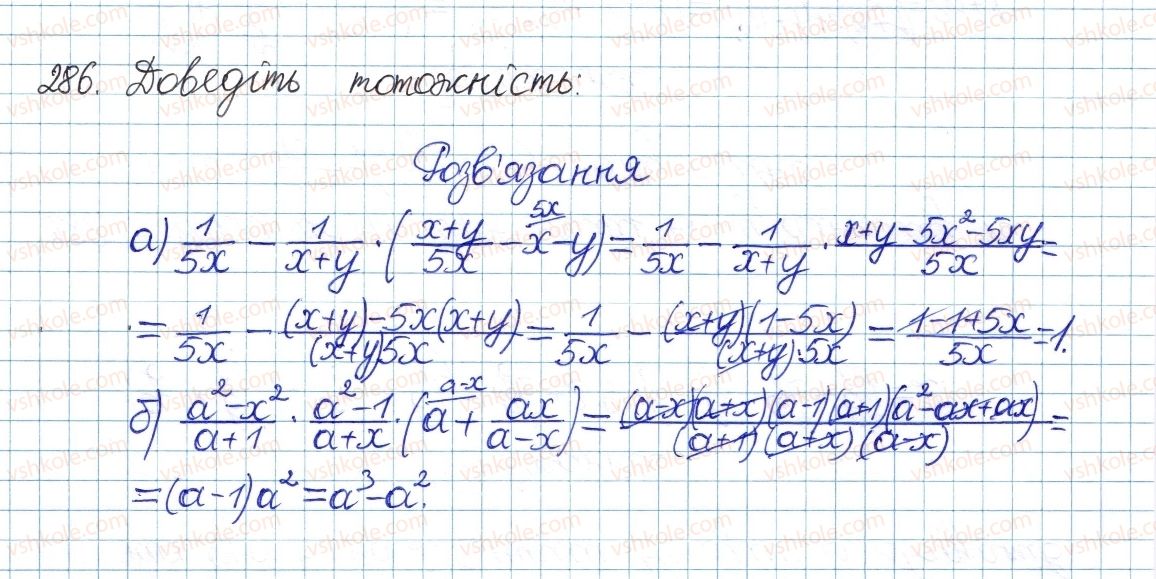 286. Доведіть тотожність:
Розв'язання
а) 1/5x − 1/x+y · (x+y/5x − x − y) = 1/5x − 1/x+y · x+y−5x²−5xy/5x =
= 1/5x − (x+y)−5x(x+y)/(x+y)5x = 1/5x − (x+y)(1−5x)/(x+y)·5x = 1−1+5x/5x = 1.
б) a²−x²/a+1 · a²−1/a+x · (a + ax/a−x) = (a−x)(a+x)(a−1)(a+1)(a²−ax+ax)/(a+1)(a+x)(a−x) =
= (a−1)a² = a³−a².